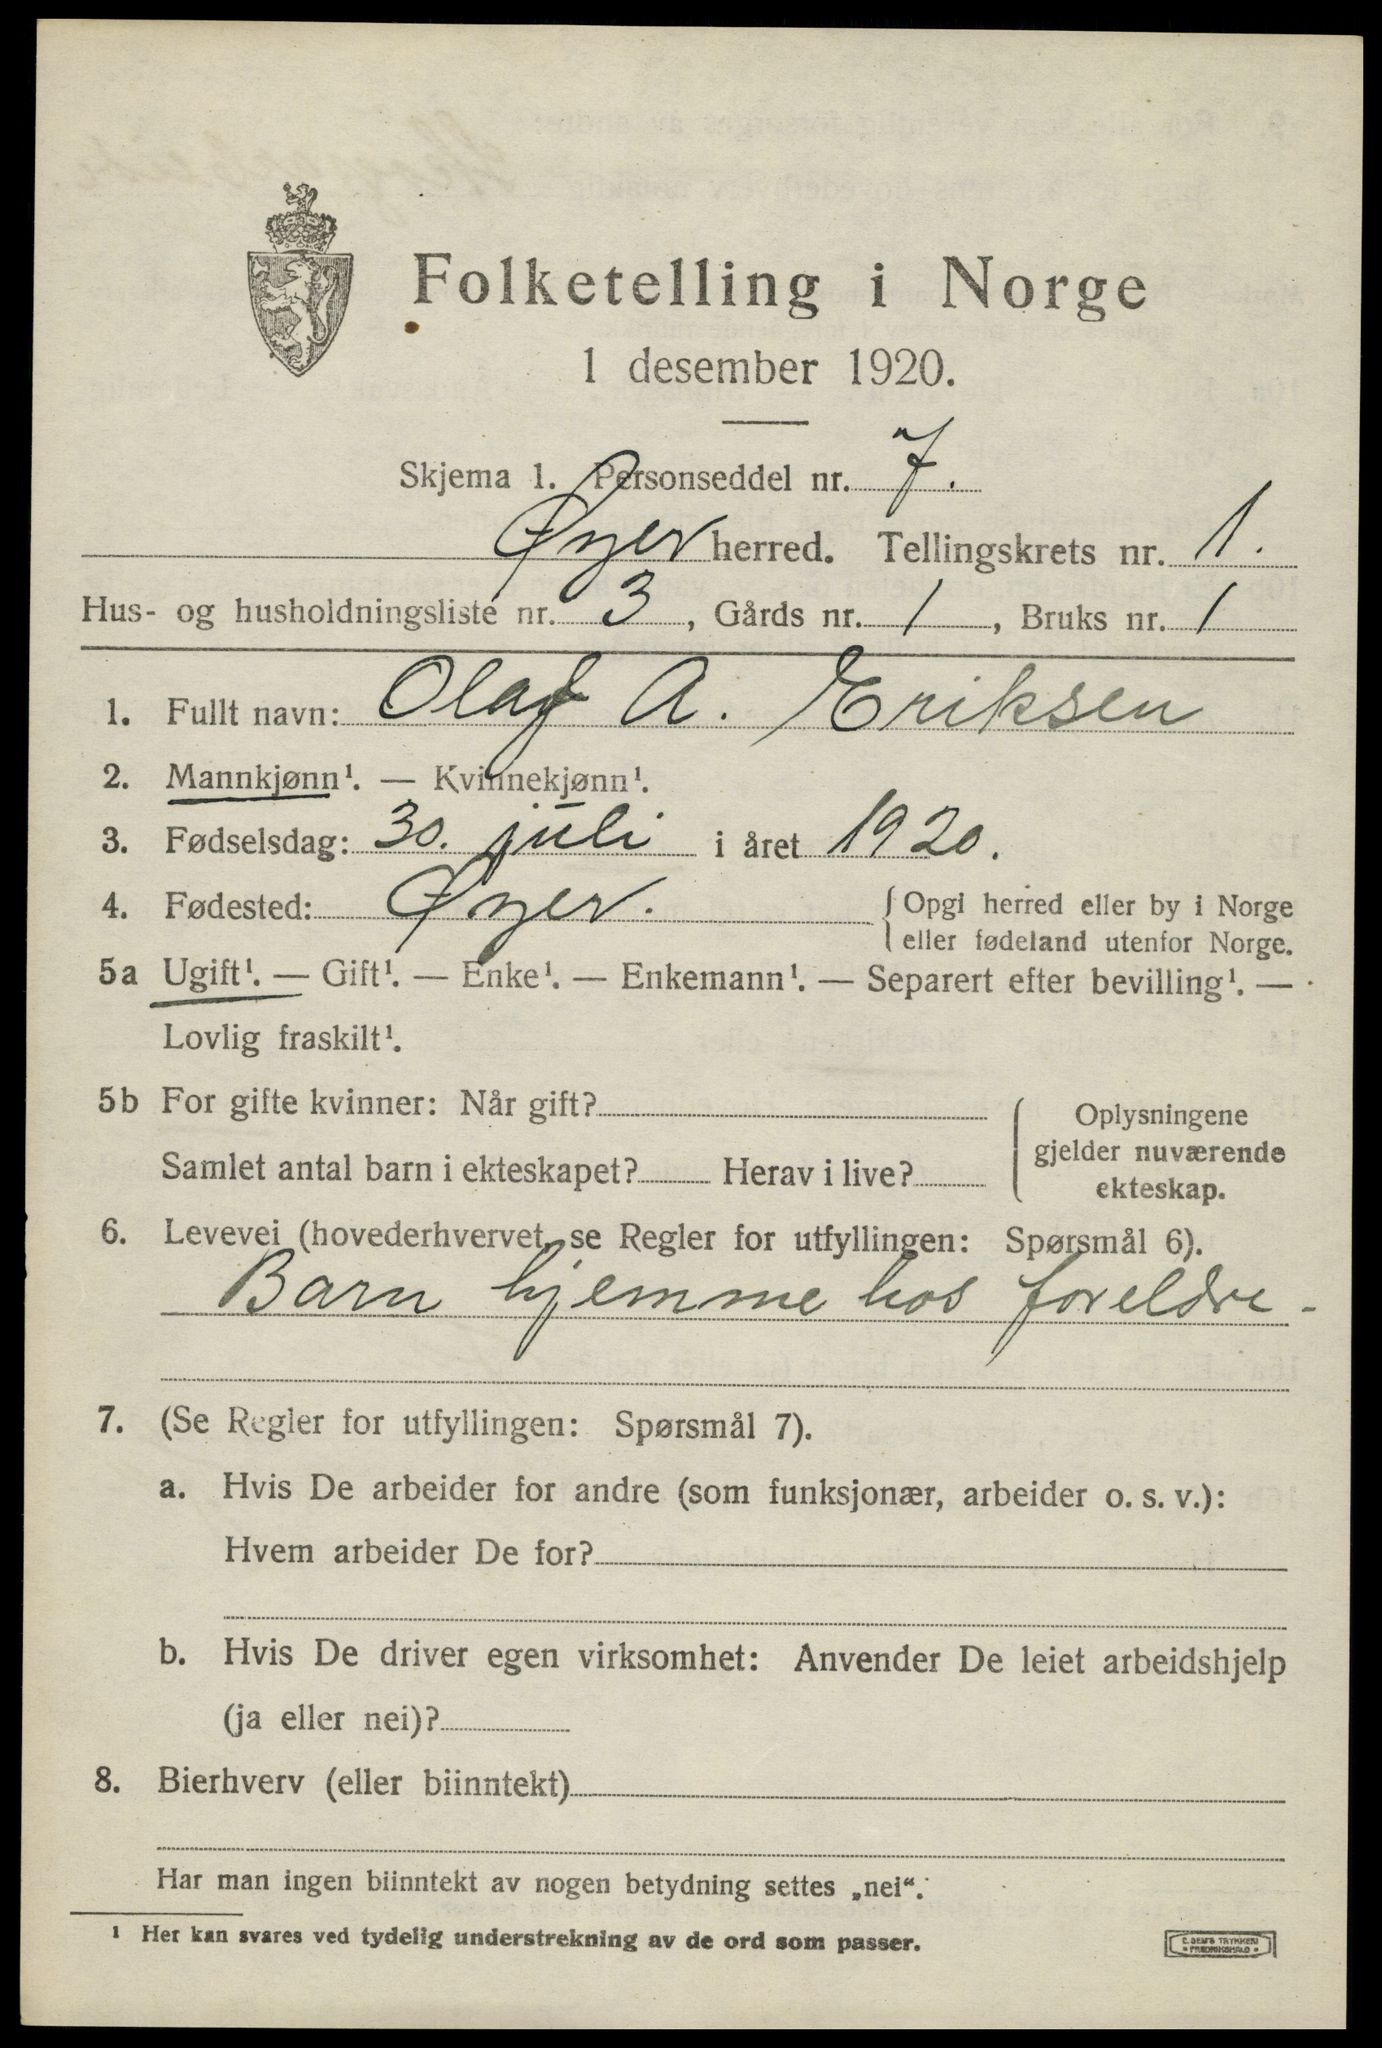 Folketelling i Norge
1 desember 1920.
Skjema 1. Personseddel nr. 7.
Øyer herred. Tellingskrets nr. 1.
Hus- og husholdningsliste nr. 3, Gårds nr. 1, Bruks nr. 1
1. Fullt navn: Olaf A. Eriksen
2. Mannkjønn¹. — Kvinnekjønn¹.
3. Fødselsdag: 30. juli i året 1920.
4. Fødested: Øyer. { Opgi herred eller by i Norge
eller fødeland utenfor Norge.
5a Ugift¹. — Gift¹. — Enke¹. — Enkemann¹. — Separert efter bevilling¹. —
Lovlig fraskilt¹.
5b For gifte kvinner: Når gift?
Samlet antal barn i ekteskapet? Herav i live?
Oplysningene
gjelder nuværende
ekteskap.
6. Levevei (hovederhvervet, se Regler for utfyllingen: Spørsmål 6).
Barn hjemme hos foreldre -
7. (Se Regler for utfyllingen: Spørsmål 7).
a. Hvis De arbeider for andre (som funksjonær, arbeider o. s. v.):
Hvem arbeider De for?
b. Hvis De driver egen virksomhet: Anvender De leiet arbeidshjelp
(ja eller nei)?
8. Bierhverv (eller biinntekt)
Har man ingen biinntekt av nogen betydning settes „nei“.
¹ Her kan svares ved tydelig understrekning av de ord som passer.
C. SEM'S TRYKKERI
FREDRIKSHALD